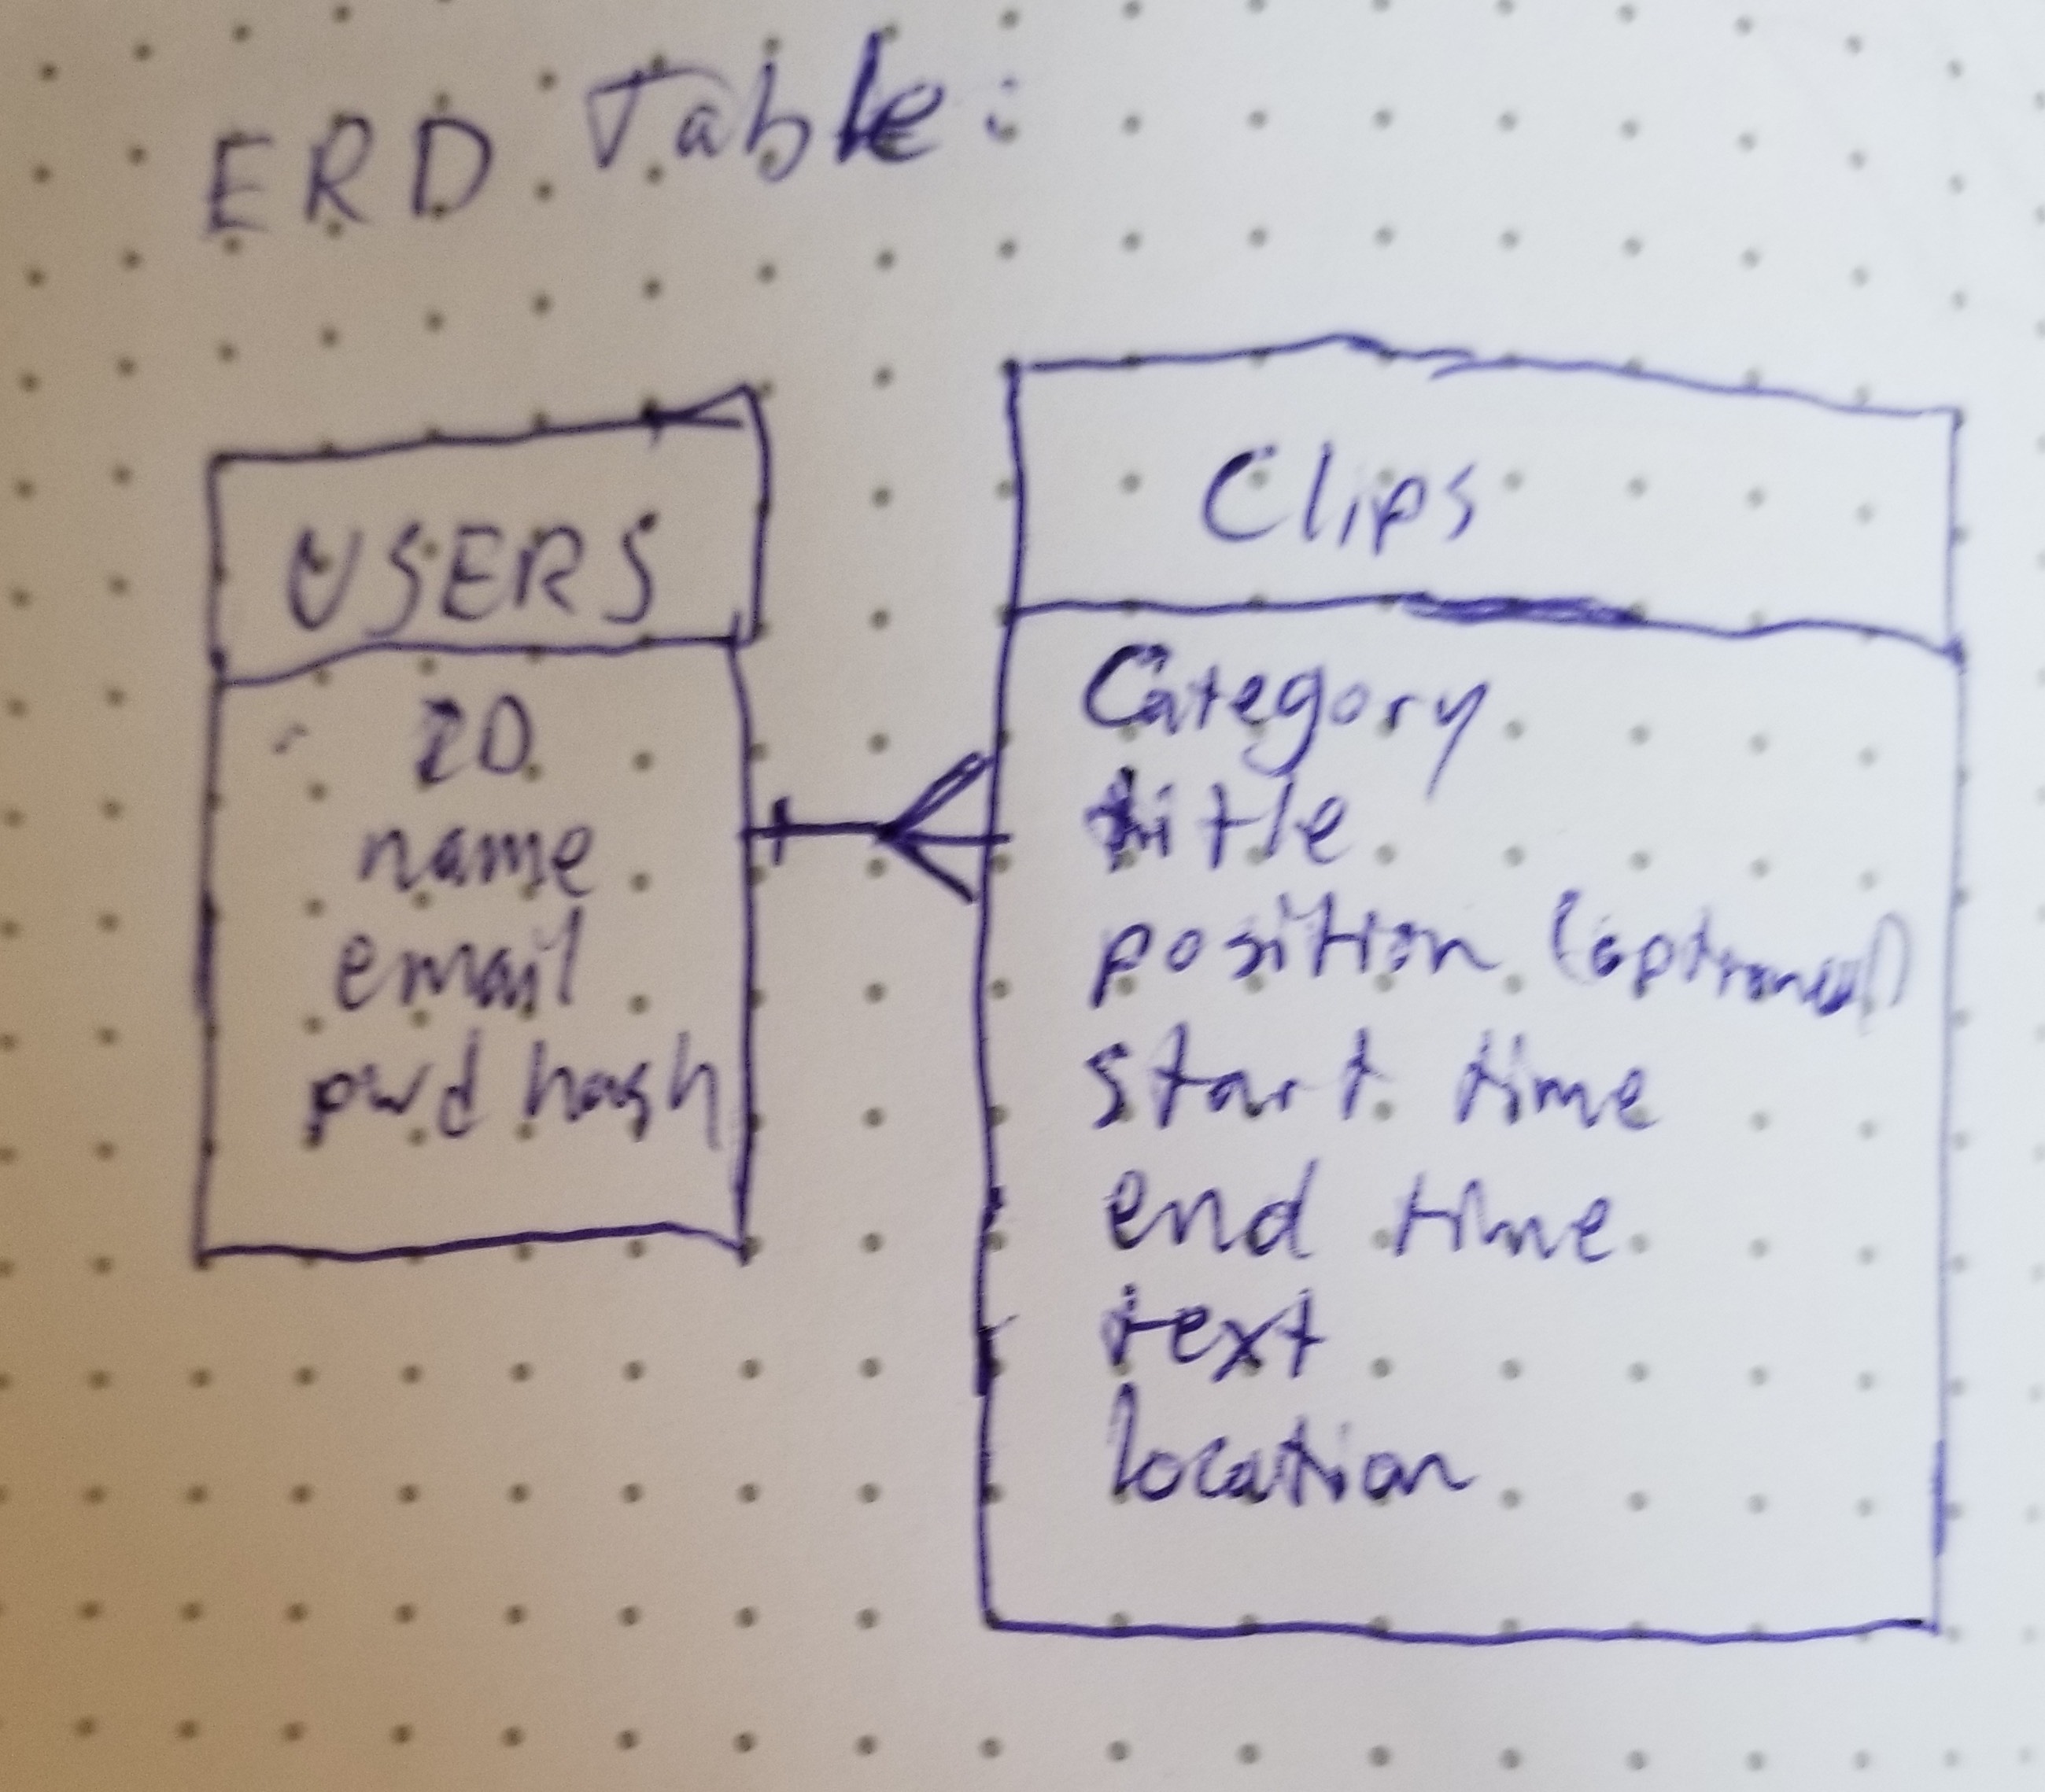 ERD Table:
USERS
ID
name
email
pwd hash
Clips
Category
title
position (optional)
start time
end time
text
location